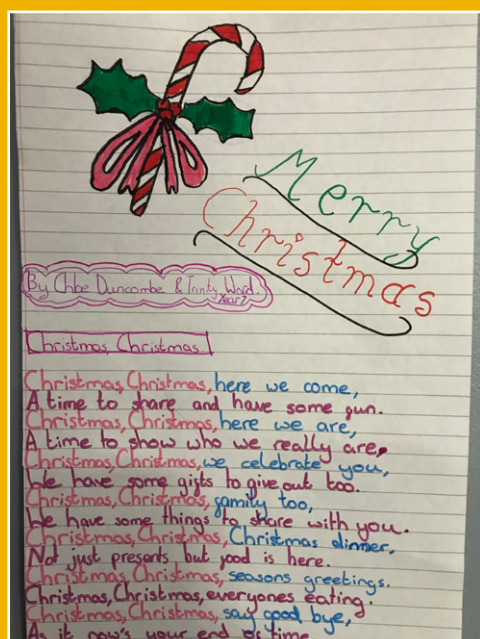 Merry
Christmas
By Chloe Duncombe & Trinity Ward.
Year 7
Christmas, Christmas
Christmas, Christmas, here we come,
A time to share and have some fun.
Christmas, Christmas, here we are,
A time to show who we really are,
Christmas, Christmas, we celebrate you,
We have some gifts to give out too.
Christmas, Christmas, family too,
We have some things to share with you.
Christmas, Christmas, Christmas dinner,
Not just presents but food is here.
Christmas, Christmas, seasons greetings.
Christmas, Christmas, everyones eating.
Christmas, Christmas, say good bye,
As it now's your end of time